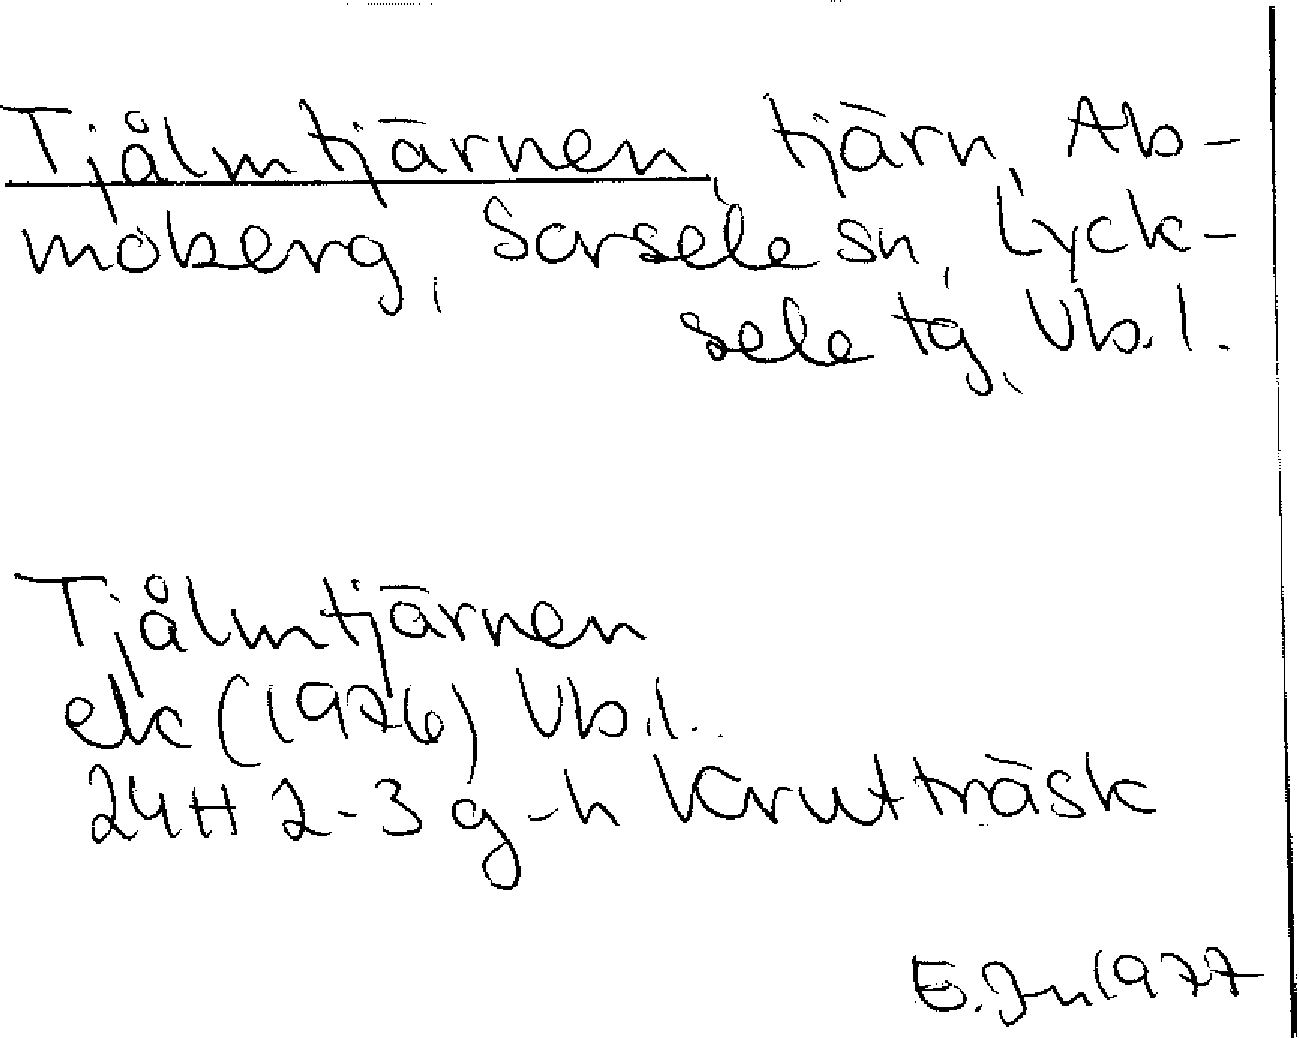 Tjålmtjärnen, tjärn, Ab-
moberg, Sorsele sn, Lyck-
sele tg, Vb.l.
Tjålmtjärnen
ek (1976) Vb.l.
24H 2-3 g-h Krutträsk
E. Jn 1977